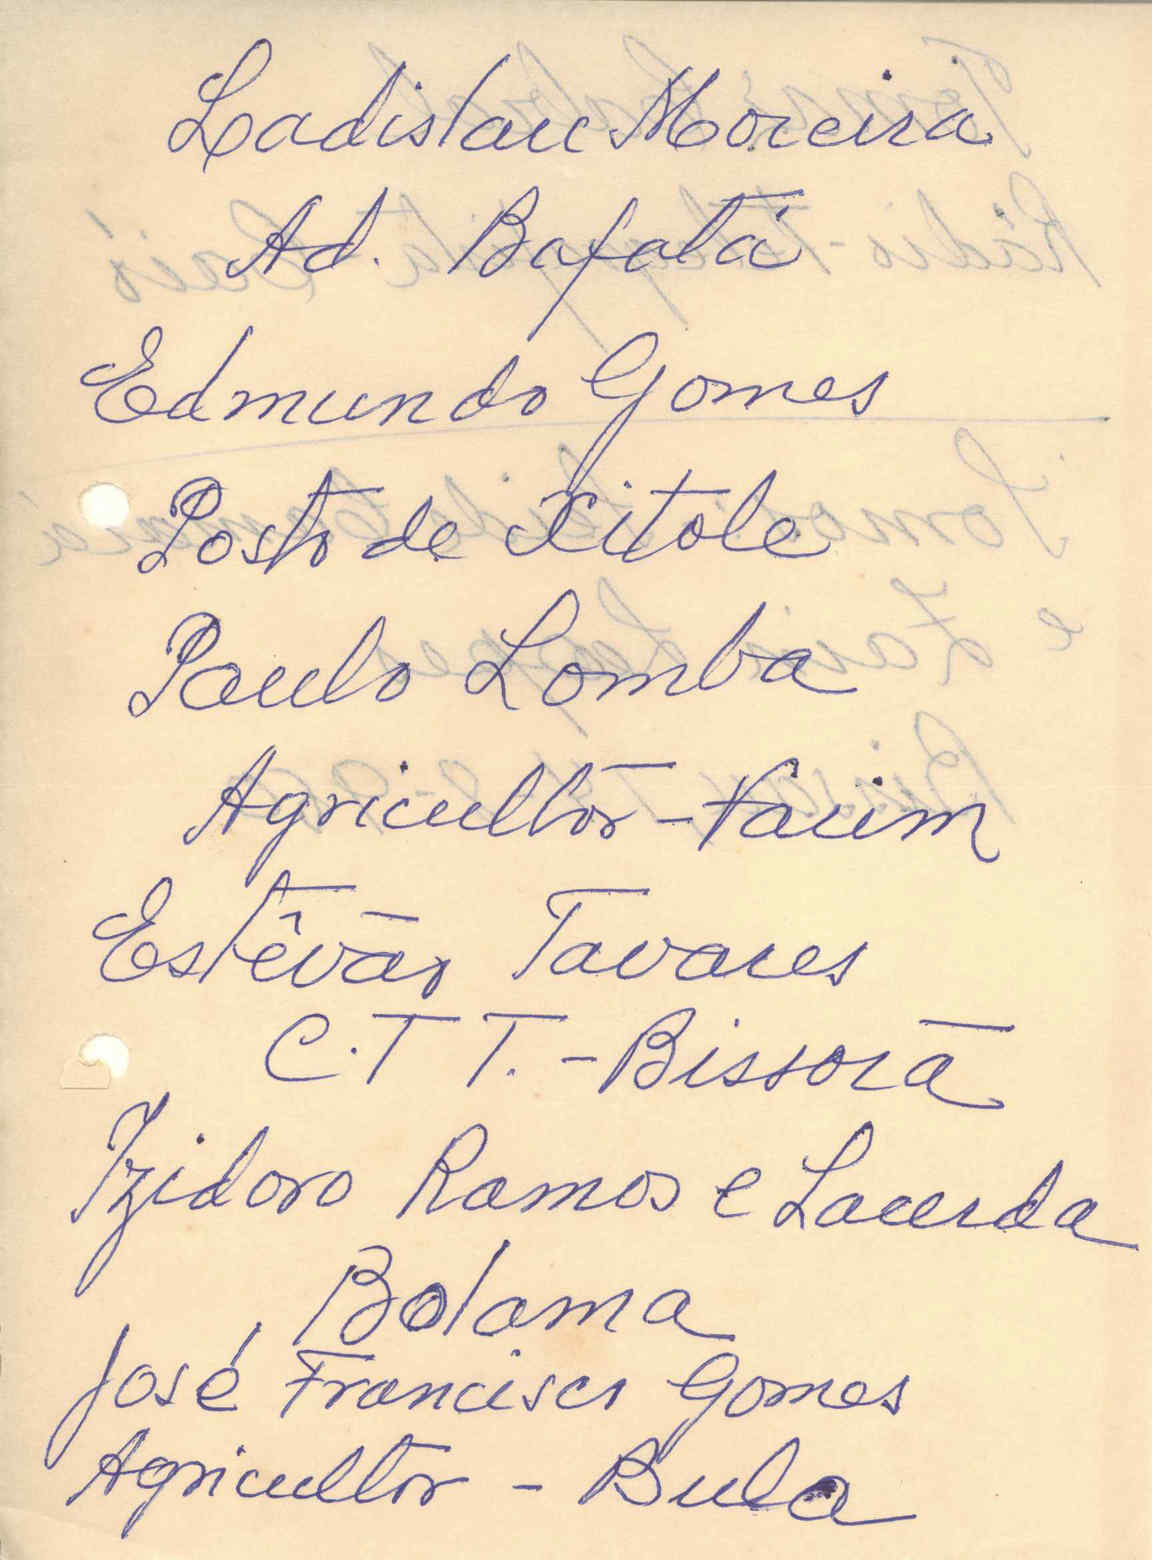 Ladislau Moreira
Ad. Bafatá
Edmundo Gomes
Posto de Xitole
Paulo Lomba
Agricultor - Farim
Estêvão Tavares
C.T T. - Bissorã
Izidoro Ramos e Lacerda
Bolama
José Francisco Gomes
Agricultor - Bula